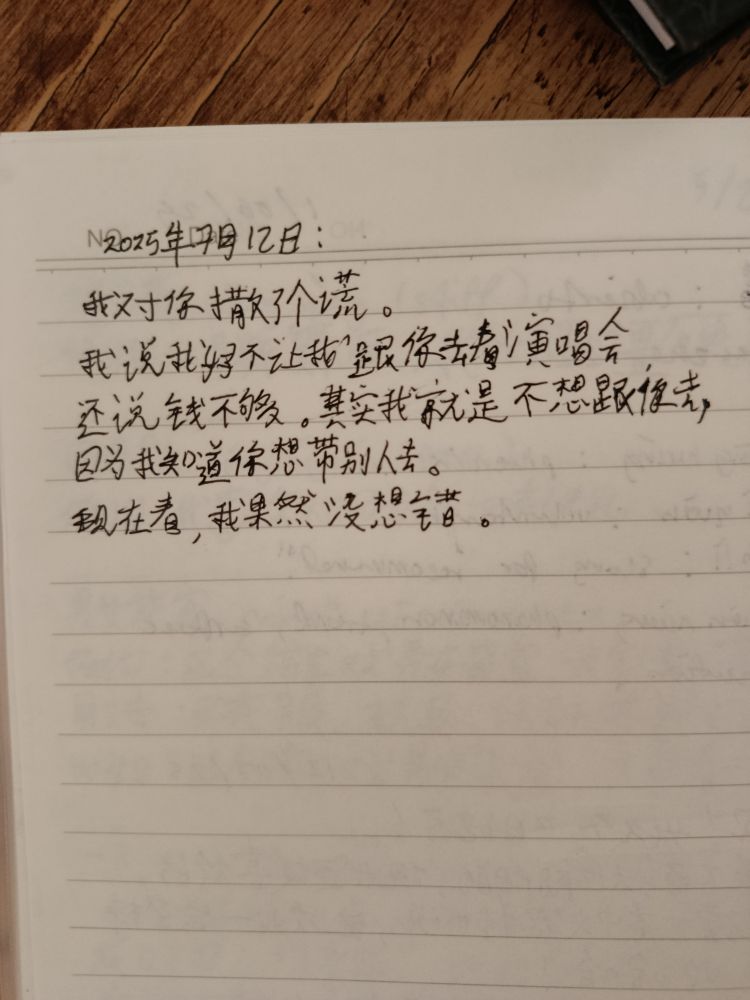 2025年7月12日：
我对你撒了个谎。
我说我妈不让我跟你去看演唱会，
还说钱不够。其实我就是不想跟你去，
因为我知道你想带别人去。
现在看，我果然没想错。